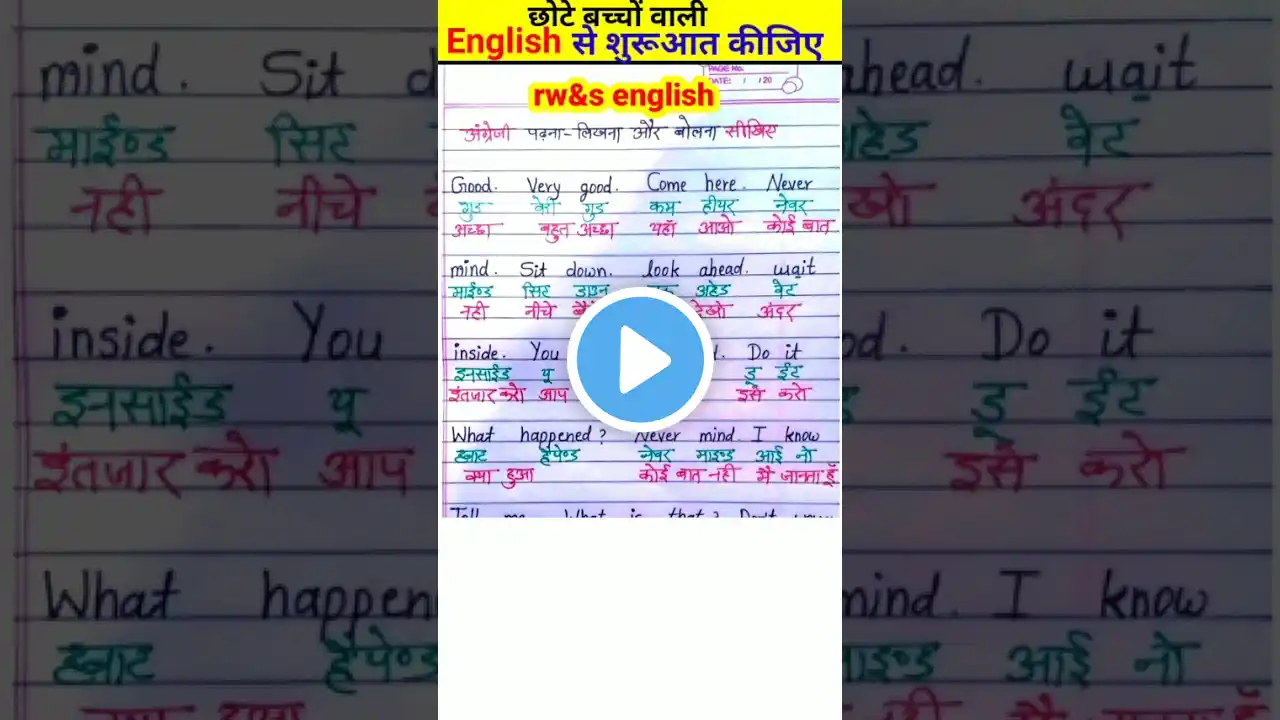 छोटे बच्चों वाली
English से शुरूआत कीजिए
PAGE No.
DATE: / /20
rw&s english
अंग्रेजी पढ़ना-लिखना और बोलना सीखिए
Good. Very good. Come here. Never
गुड वेरी गुड कम हीयर नेवर
अच्छा बहुत अच्छा यहाँ आओ कोई बात
mind. Sit down. look ahead. wait
माईण्ड सिट डाउन अहेड वेट
नही नीचे देखो अंदर
inside. You Do it
इनसाईड यू डू ईट
इंतजार करो आप इसे करो
What happened? Never mind. I know
व्हाट हैपेण्ड नेवर माइण्ड आई नो
क्या हुआ कोई बात नही मै जानता हूँ
Tell me. What is that? Don't
mind. Sit
माईण्ड सिट
नही नीचे
inside. You
इनसाईड यू
इंतजार करो आप
What
व्हाट हैपेण्ड
ahead. wait
अहेड वेट
अंदर
Do it
डू ईट
इसे करो
mind. I know
आई नो